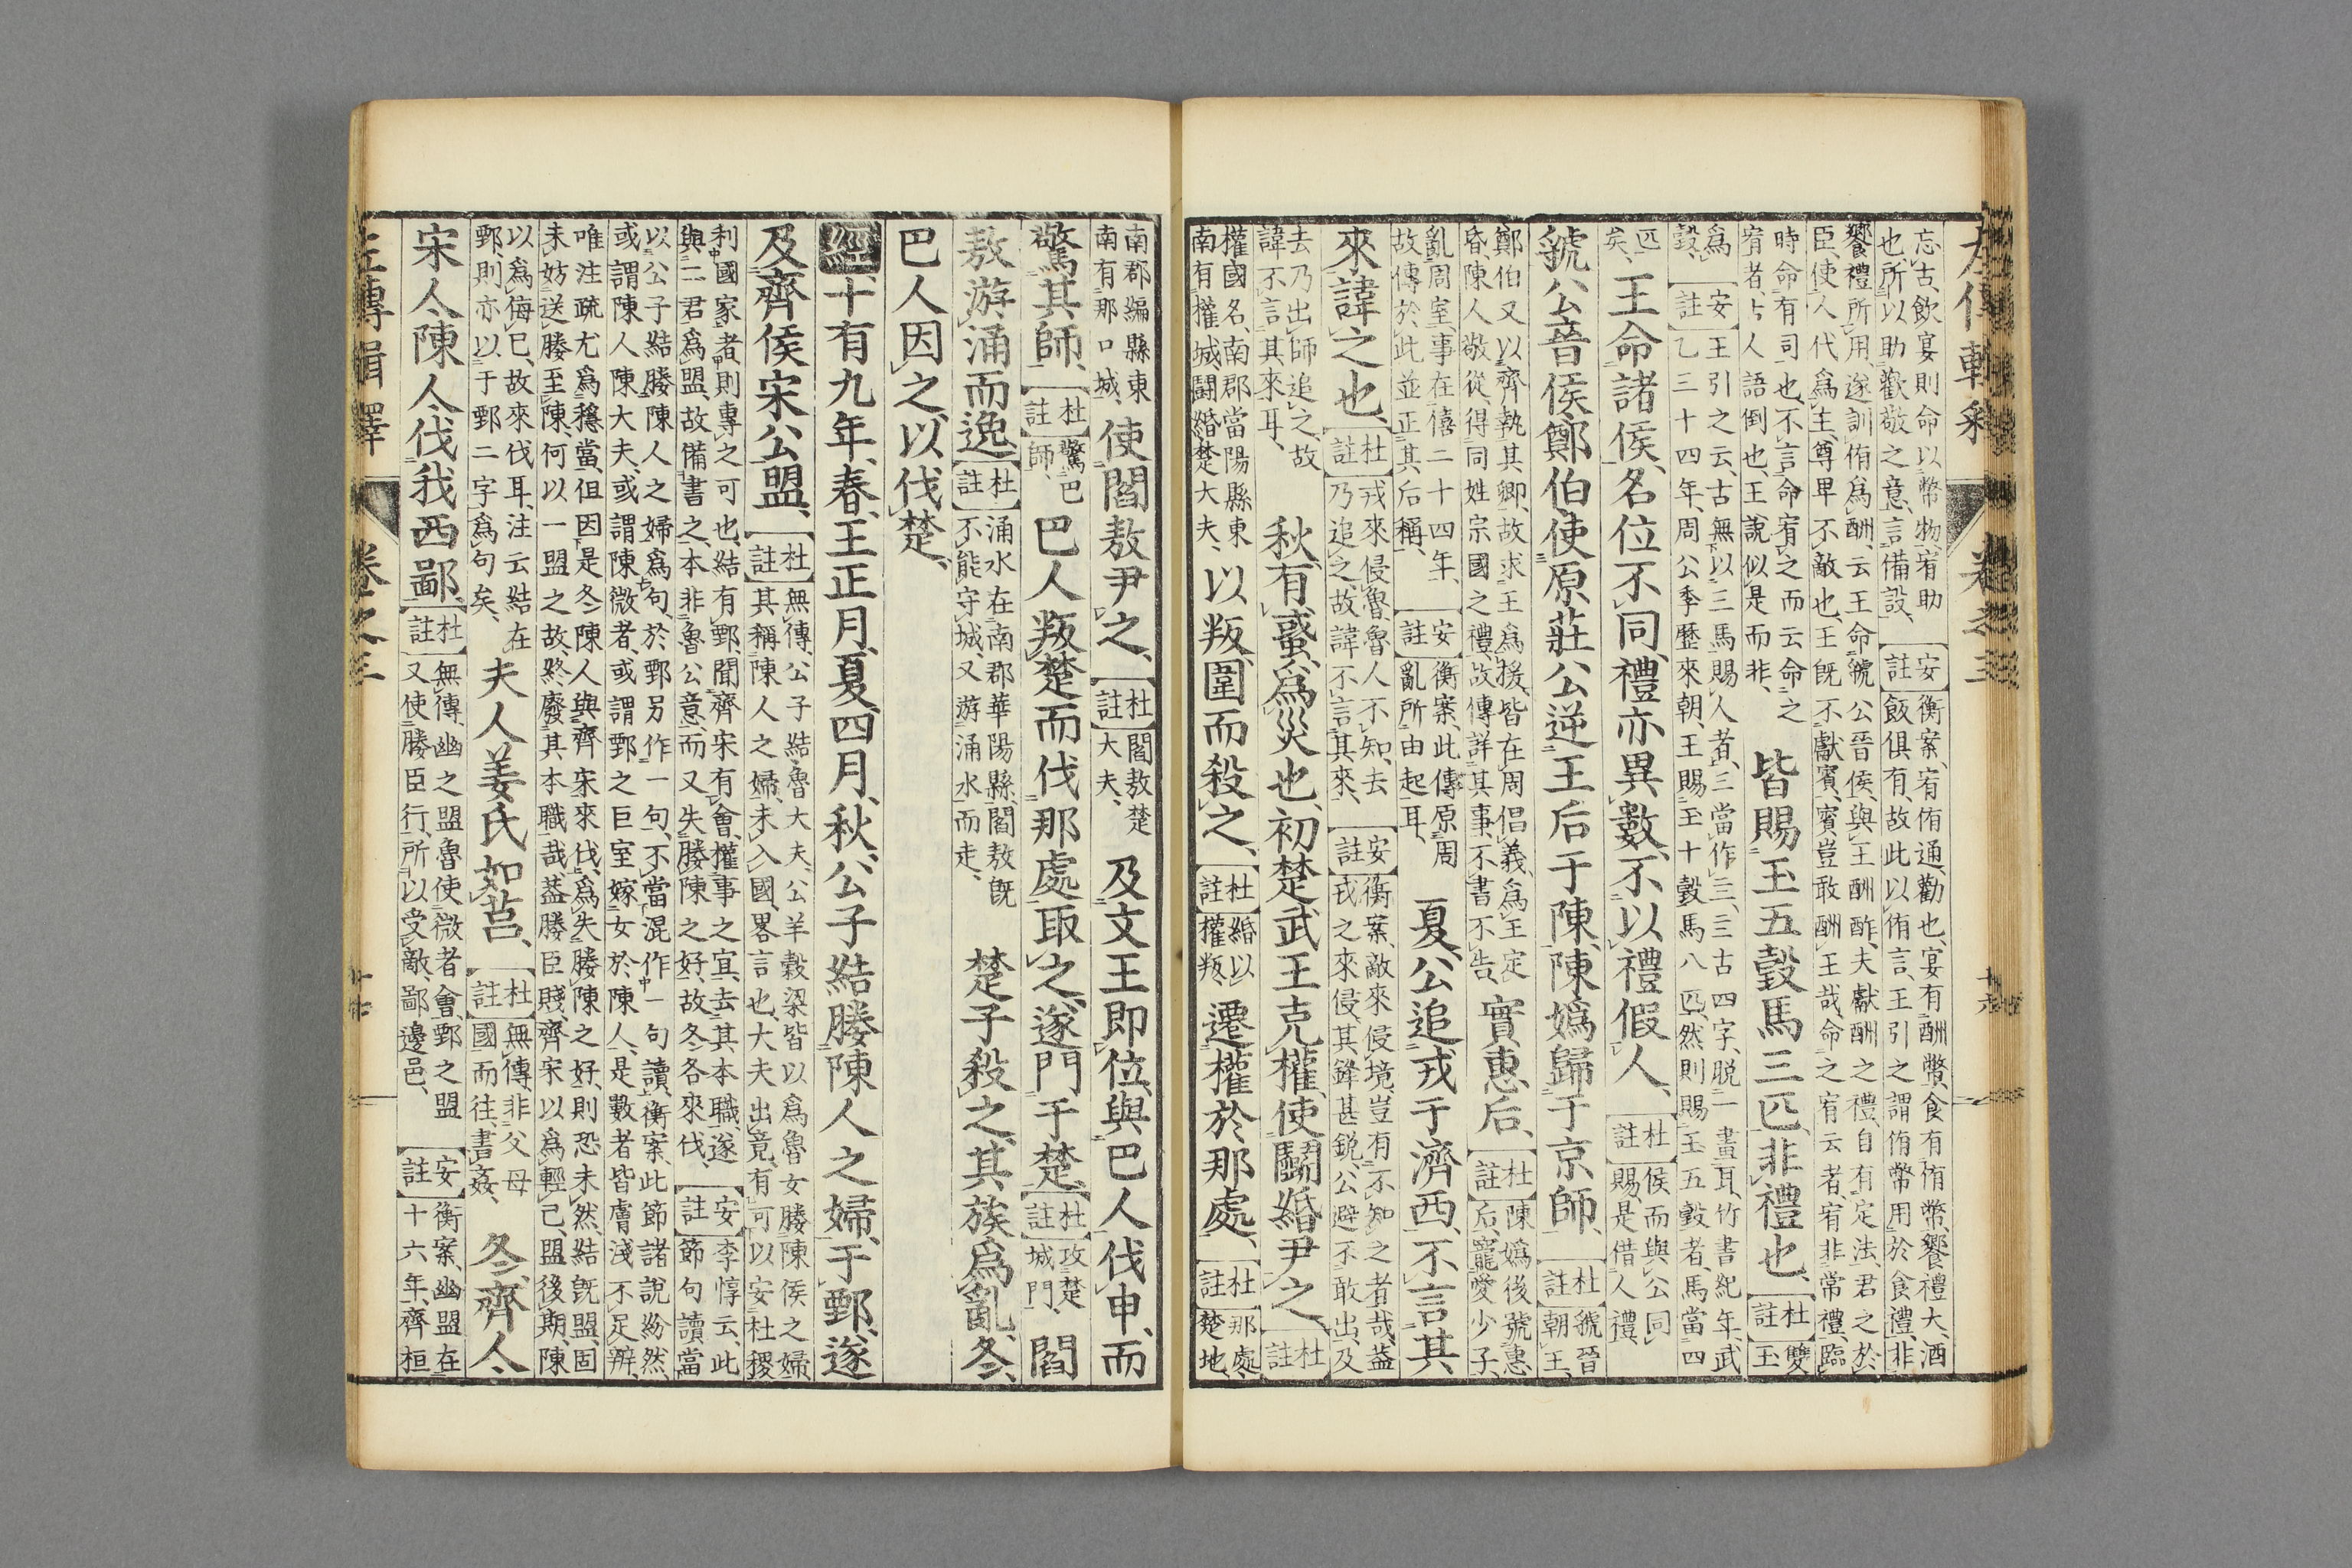 左傳輯釋　卷之三
忘古、飲宴則命以幣物、宥助
也、所以助歡敬之意、言備設、
安註
衡案、宥侑通、勸也、宴有酬幣、食有侑幣、饗禮大、酒
飯俱有、故此以侑言、王引之謂侑幣用於食禮、非
饗禮所用、遂訓侑爲酬、云王命虢公晉侯、與王酬酢、夫獻酬之禮、自有定法、君之於
臣、使人代爲主、尊卑不敵也、王旣不獻賓、賓豈敢酬王哉、命之宥云者、宥非常禮、臨
時命有司也、不言命宥之而云命之
宥者、古人語倒也、王說似是而非、
皆賜玉五瑴馬三匹、非禮也、
杜註
雙玉
爲瑴、
安註
王引之云、古無以三馬賜人者、三當作亖、亖古四字、脱一畫耳、竹書紀年、武
乙三十四年、周公季歷來朝、王賜玉十瑴馬八匹、然則賜玉五瑴者、馬當四
匹矣、
王命諸侯、名位不同、禮亦異數、不以禮假人、
杜註
侯而與公同
賜、是借人禮、
虢公晉侯鄭伯使原莊公逆王后于陳、陳嬀歸于京師、
杜註
虢晉朝王、
鄭伯又以齊執其卿、故求王爲援、皆在周倡義、爲王定
昏、陳人敬從、得同姓宗國之禮、故傳詳其事、不書不告、
實惠后、
杜註
陳嬀後號惠
后、寵愛少子、
亂周室、事在僖二十四年、
故傳於此並正其后稱、
安註
衡案、此傳原周
亂所由起耳、
夏、公追戎于濟西、不言其
來、諱之也、
杜註
戎來侵魯、魯人不知、去
乃追之、故諱不言其來、
安註
衡案、敵來侵境、豈有不知之者哉、蓋
戎之來侵、其鋒甚銳、公避不敢出、及
去乃出師追之、故
諱不言其來耳、
秋、有蜮、爲災也、初楚武王克權、使鬬緡尹之、
杜註
權國名、南郡當陽縣東
南有權城、鬬緡楚大夫、
以叛、圍而殺之、
杜註
緡以權叛、
遷權於那處、
杜註
那處楚地、
南郡編縣東
南有那口城、
使閻敖尹之、
杜註
閻敖楚大夫、
及文王即位、與巴人伐申、而
驚其師、
杜註
驚巴師、
巴人叛楚而伐那處、取之、遂門于楚、
杜註
攻楚城門、
閻
敖游涌而逸、
杜註
涌水在南郡華陽縣、閻敖旣
不能守城、又游涌水而走、
楚子殺之、其族爲亂、冬、
巴人因之、以伐楚、
經、十有九年、春、王正月、夏、四月、秋、公子結媵陳人之婦、于鄄、遂
及齊侯宋公盟、
杜註
無傳、公子結、魯大夫、公羊穀梁皆以爲魯女媵陳侯之婦、
其稱陳人之婦、未入國、畧言也、大夫出竟、有可以安社稷
利國家者、則專之可也、結有鄄、聞齊宋有會、權事之宜、去其本職、遂
與二君爲盟、故備書之、本非魯公意、而又失媵陳之好、故冬各來伐、
安註
李惇云、此
節句讀當
以公子結媵陳人之婦爲句、於鄄另作一句、不當混作一句讀、衡案、此節諸說紛然、
或謂陳人陳大夫、或謂陳微者、或謂鄄之巨室嫁女於陳人、是數者皆膚淺不足辨、
唯注疏尤爲穩當、但因是冬陳人與齊宋來伐、爲失媵陳之好、則恐未然、結旣盟、固
未妨送媵至陳、何以一盟之故、終廢其本職哉、蓋媵臣賤、齊宋以爲輕己、盟後期、陳
以爲侮己、故來伐耳、注云結在
鄄、則亦以于鄄二字爲句矣、
夫人姜氏如莒、
杜註
無傳、非父母
國而往、書姦、
冬、齊人
宋人陳人伐我西鄙、
杜註
無傳、幽之盟、魯使微者會、鄄之盟
又使媵臣行、所以受敵、鄙邊邑、
安註
衡案、幽盟在
十六年、齊桓
左傳輯釋　卷之三